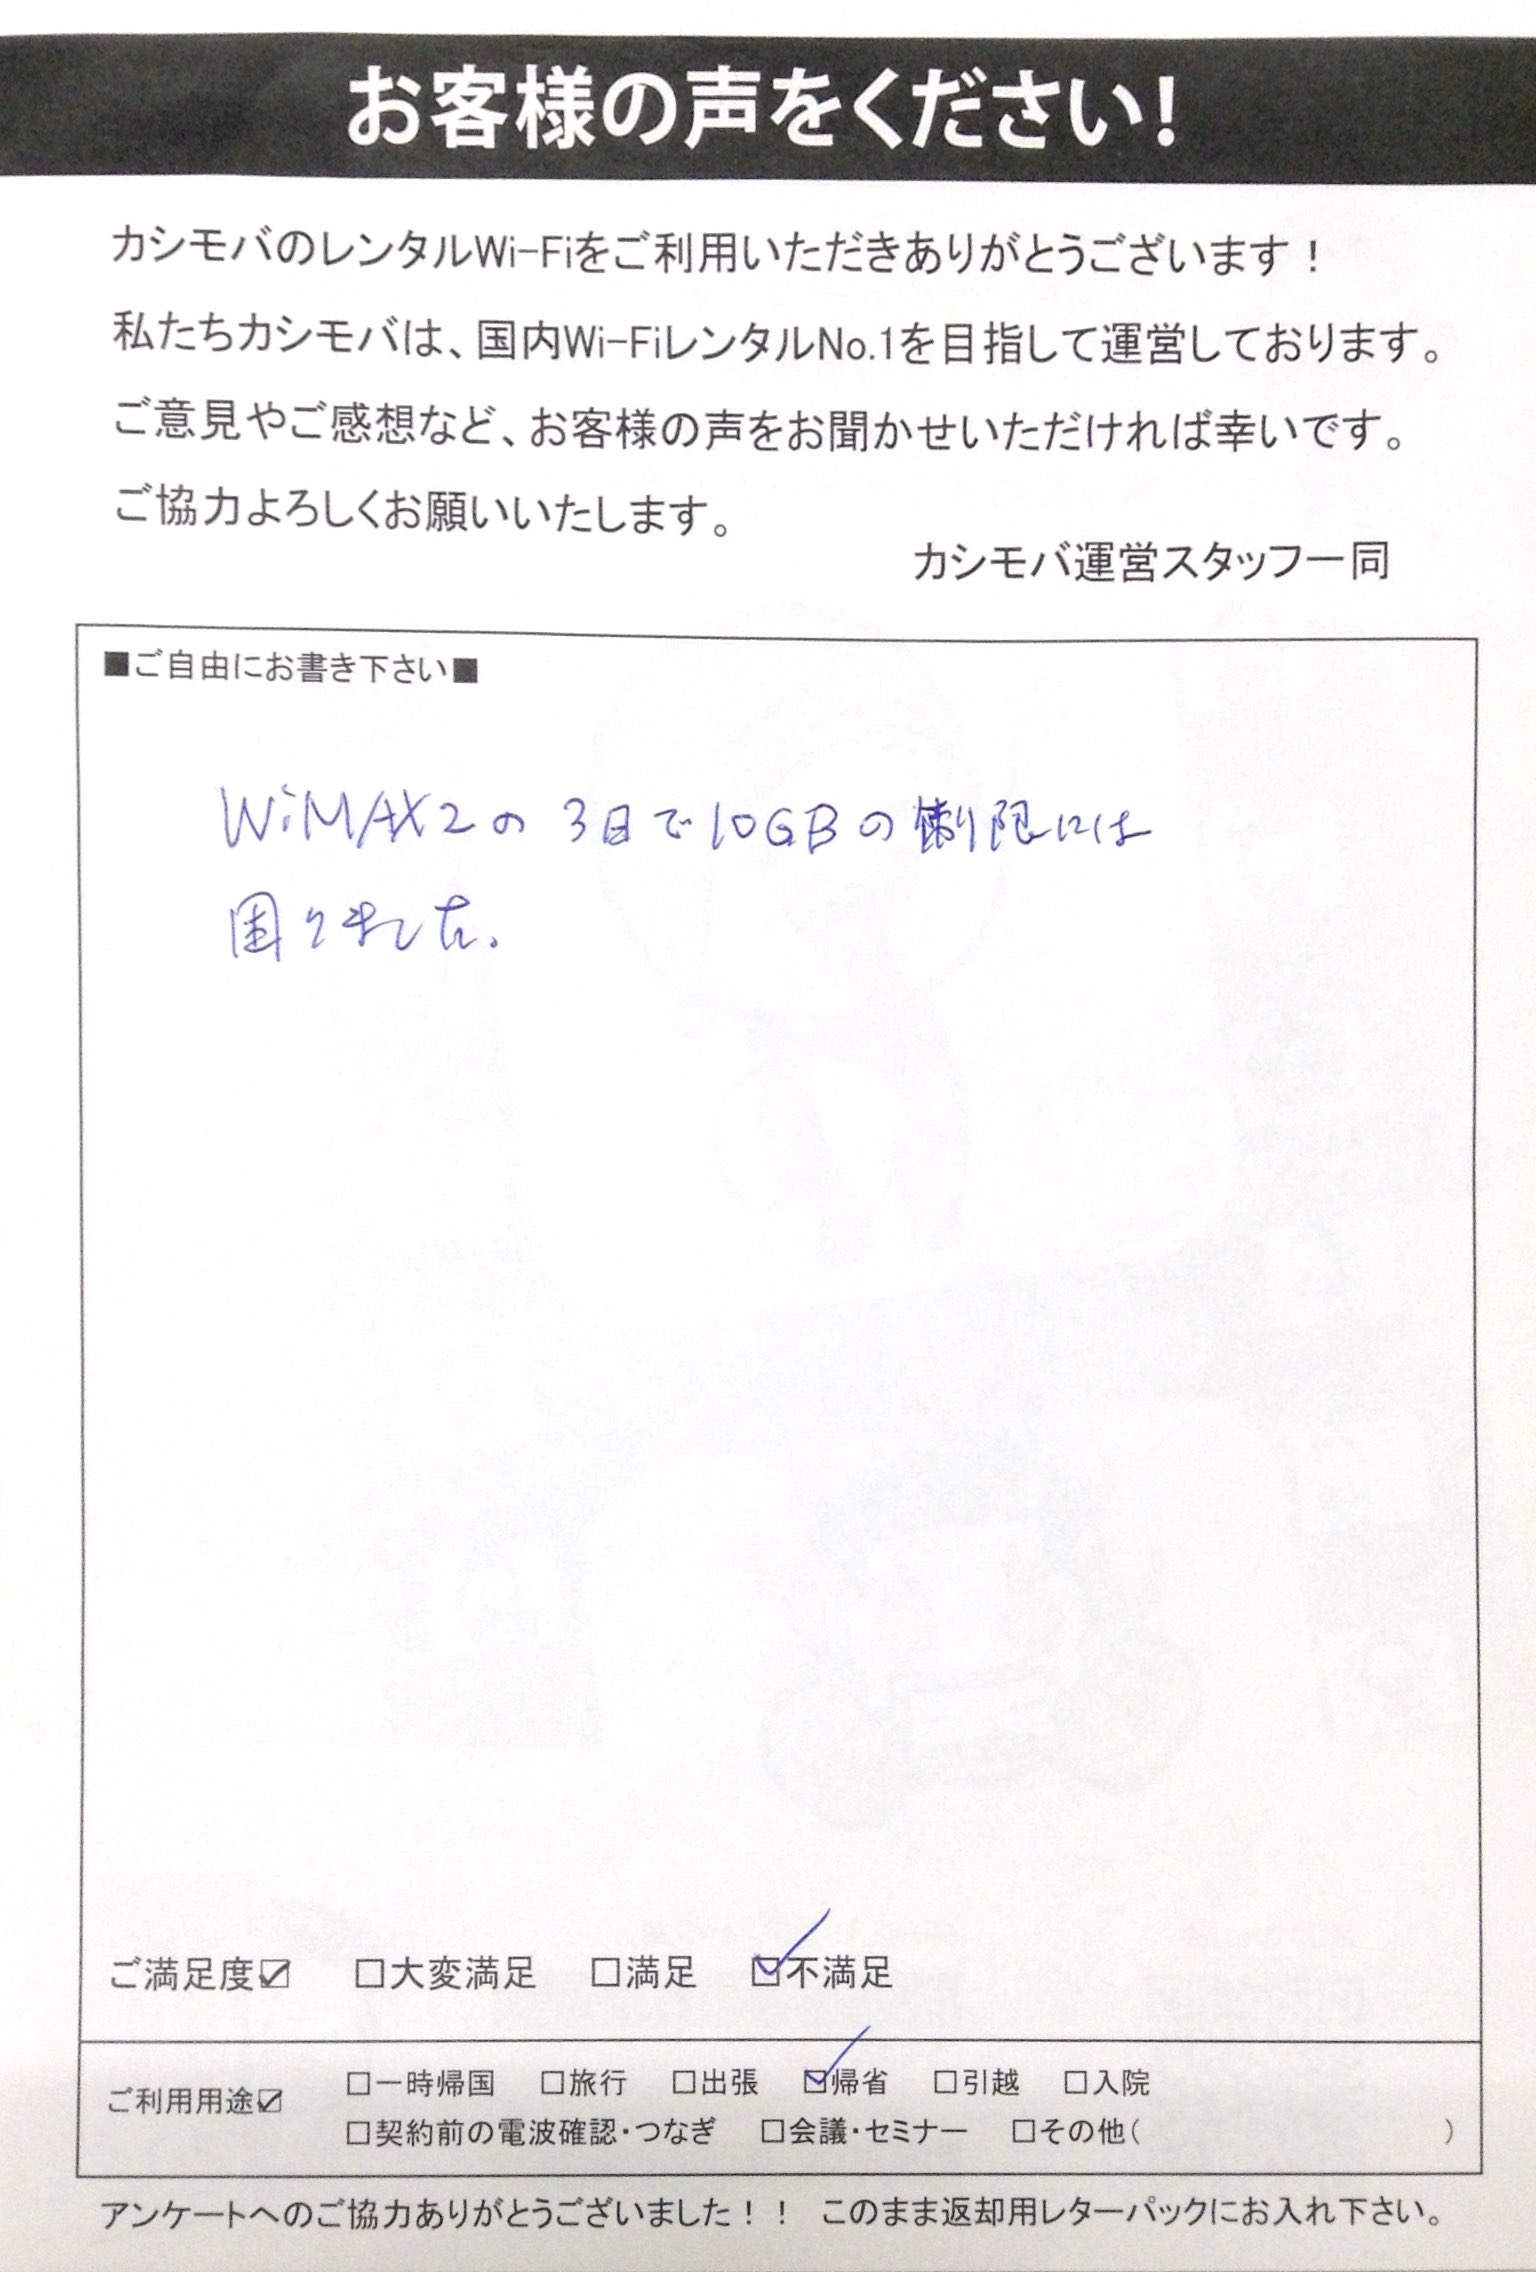 お客様の声をください!
カシモバのレンタルWi-Fiをご利用いただきありがとうございます！
私たちカシモバは、国内Wi-FiレンタルNo.1を目指して運営しております。
ご意見やご感想など、お客様の声をお聞かせいただければ幸いです。
ご協力よろしくお願いいたします。
カシモバ運営スタッフ一同
■ご自由にお書き下さい■
WiMAX2の3日で10GBの制限には
困りました.
ご満足度☑ □大変満足 □満足 ☑不満足
ご利用用途☑ □一時帰国 □旅行 □出張 ☑帰省 □引越 □入院
□契約前の電波確認・つなぎ □会議・セミナー □その他( )
アンケートへのご協力ありがとうございました！！ このまま返却用レターパックにお入れ下さい。